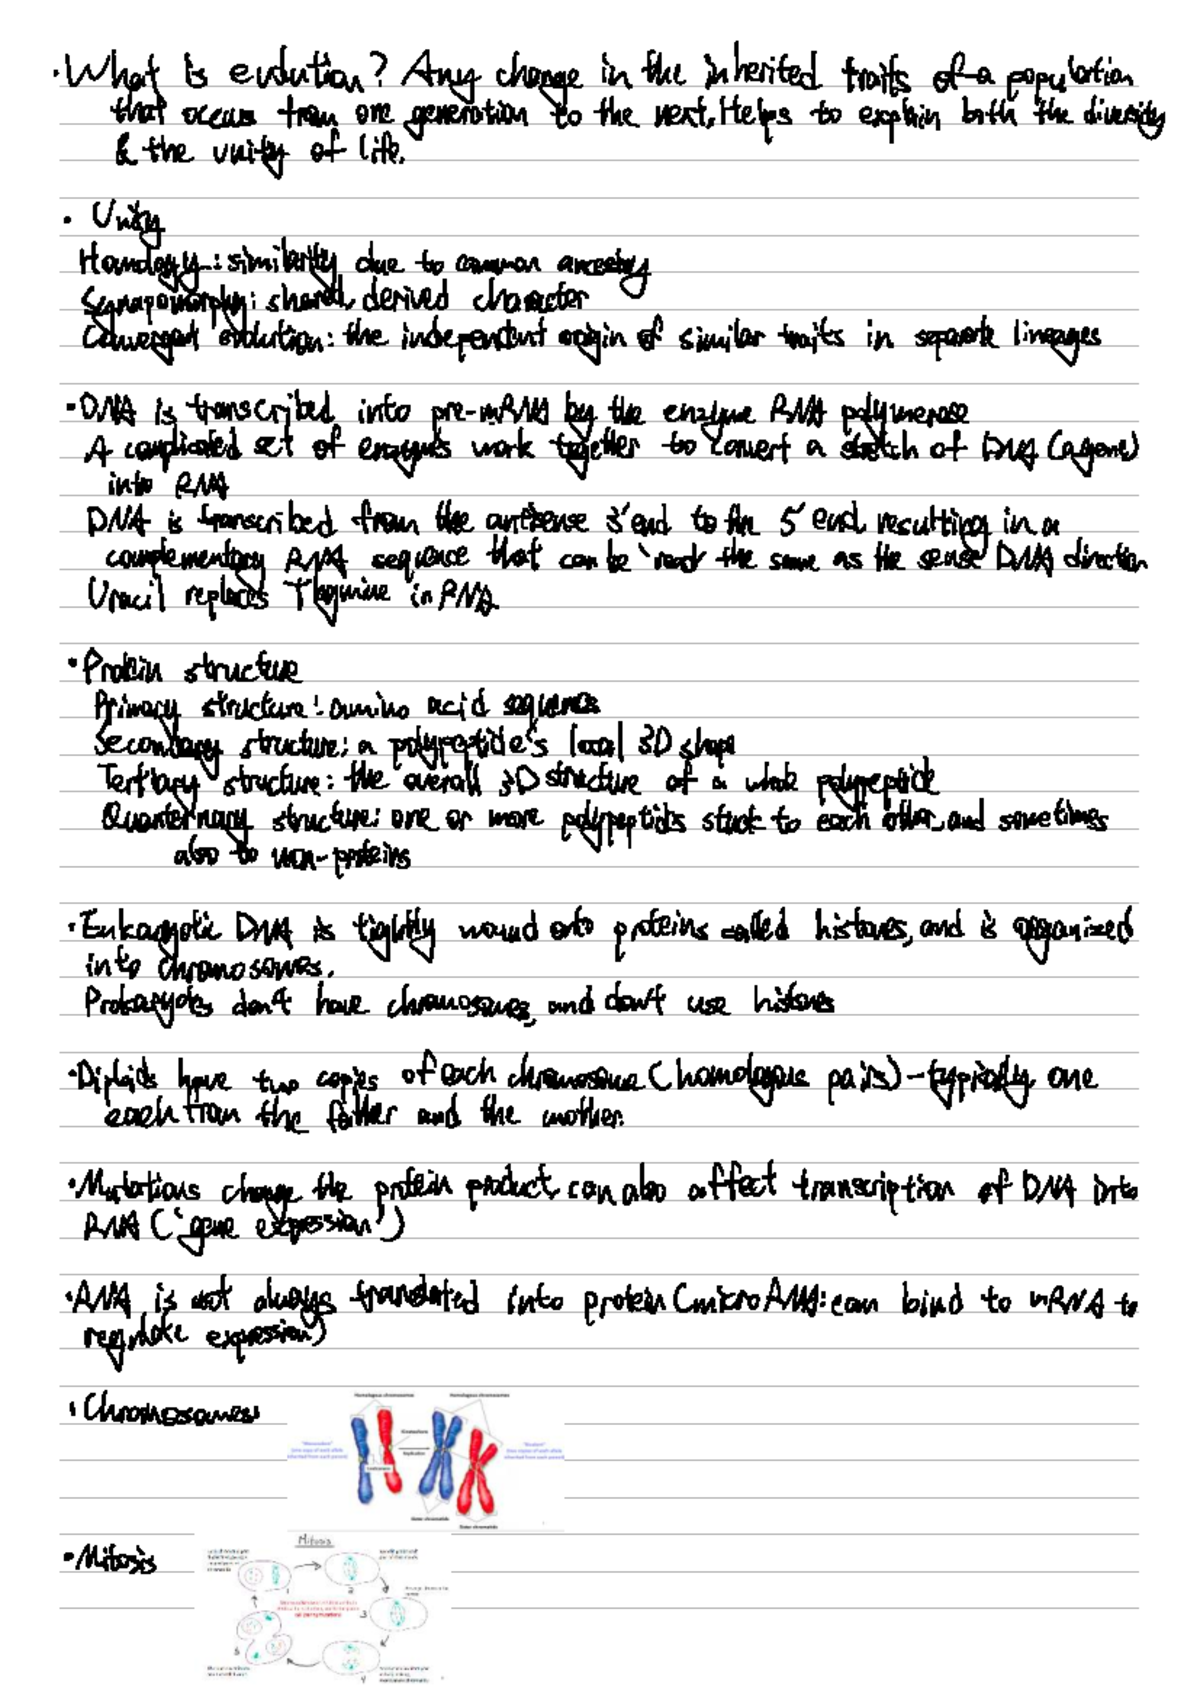 ·What is evolution? Any change in the inherited traits of a population
that occurs from one generation to the next. Helps to explain both the diversity
& the unity of life.
· Unity
Homology: similarity due to common ancestry
Synapomorphy: shared, derived character
Convergent evolution: the independent origin of similar traits in separate lineages
·DNA is transcribed into pre-mRNA by the enzyme RNA polymerase
A complicated set of enzymes work together to convert a stretch of DNA (a gene)
into RNA
DNA is transcribed from the antisense 3' end to the 5' end, resulting in a
complementary RNA sequence that can be 'read' the same as the sense DNA direction
Uracil replaces Thymine in RNA
·Protein structure
Primary structure: amino acid sequence
Secondary structure: a polypeptide's local 3D shape
Tertiary structure: the overall 3D structure of a whole polypeptide
Quanternary structure: one or more polypeptids stuck to each other, and sometimes
also to non-proteins
·Eukaryotic DNA is tightly wound onto proteins called histones, and is organized
into chromosomes.
Prokaryotes don't have chromosomes, and don't use histones
·Diploids have two copies of each chromosome (homologue pairs)-typically one
each from the father and the mother.
·Mutations change the protein product, can also affect transcription of DNA into
RNA ('gene expression')
·RNA is not always translated into protein (microRNA: can bind to mRNA to
regulate expression)
·Chromosomes:
Homologous chromosomes Homologous chromosomes
Sister chromatids
Sister chromatids
·Mitosis
Mitosis
1
2
3
4
5